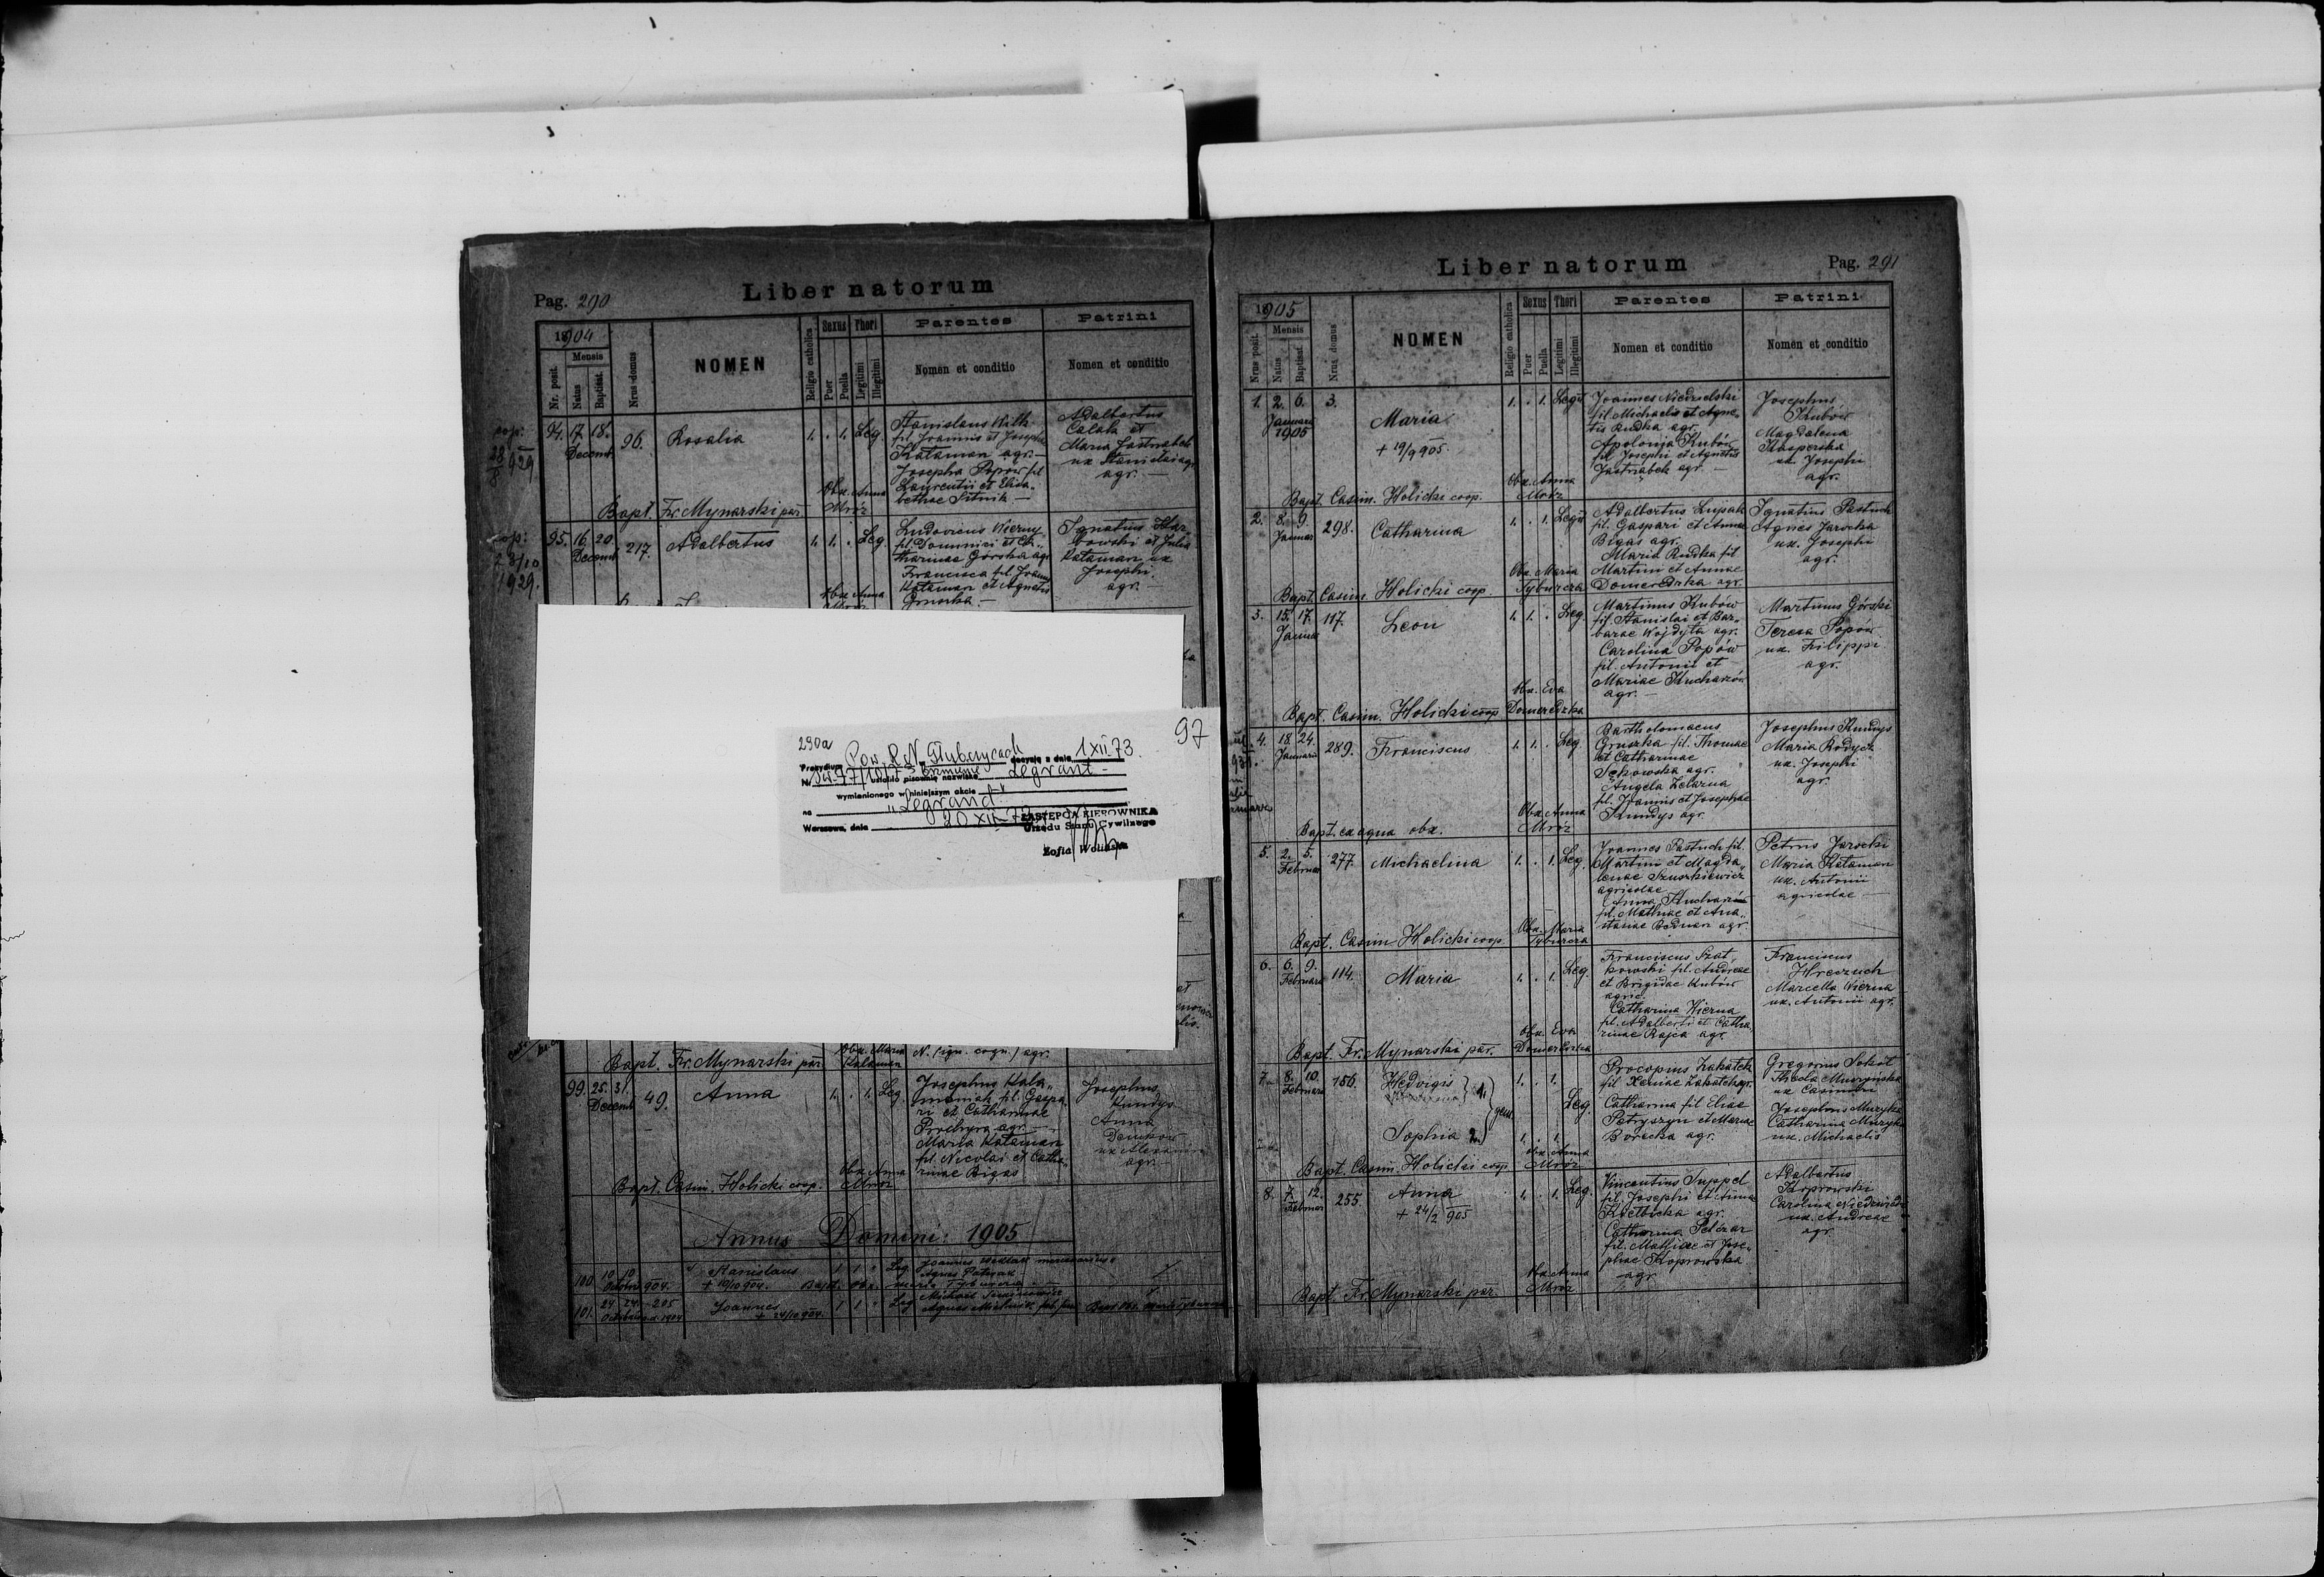 Pag. 290
Liber natorum
1904
Nr. posit.
Mensis
Natus
Baptisat.
Nrus domus
NOMEN
Religio catholica
Sexus
Puer
Puella
Thori
Legitimi
Illegitimi
Parentes
Nomen et conditio
Patrini
Nomen et conditio
cop:
28
8 929
94. 17. 18.
Decemb.
96.
Rosalia
1. . 1. Leg.
Stanislaus Wilk
fil. Joannis et Josepha
Kataman agr. —
Josepha Popów fil.
Laurentii et Elisa-
bethae Sitnik —
Adalbertus
Calak et
Maria Jastrzabek
ux. Stanislai agr.
agr. —
Obx. Anna
Mróz
Bapt. Fr. Mynarski par.
cop:
23/10
1929.
95. 16. 20.
Decemb.
217.
Adalbertus
1. 1. . Leg.
Ludovicus Wierny
fil. Dominici et Ca-
tharinae Górska agr.
Francisca fil. Joannis
Kataman et Agnetis
Gruszka. —
Ignatius
et Julia
Kataman ux.
Josephi.
agr. —
Obx. Anna
Mróz
290a
97
Prezydium Pow. R.N. w Głubczycach decyzją z dnia 1 XII 73.
Nr
ustaliło pisownię nazwiska Legrant -
wymienionego w niniejszym akcie
na "Legrand"
Warszawa, dnia 20 XII 73
ZASTĘPCA KIEROWNIKA
Urzędu Stanu Cywilnego
Zofia Wolińska
N. (ign. cogn.) agr.
Obx. Maria
Kataman
Bapt. Fr. Mynarski par.
99. 25. 31.
Decemb.
49.
Anna
1. . 1. Leg.
Josephus Kala-
munak fil. Gaspa-
ri et Catharinae
Prochyra agr. —
Maria Kataman
fil. Nicolai et Catha-
rinae Bigas
Josephus
Kundys
Anna
Denikow
ux. Alexandri
agr. —
Obx. Anna
Mróz
Bapt. Casim. Holicki coop.
Annus Domini: 1905
100 10 10
Octobris 904.
Stanislaus
+ 10/10 904.
1 1 " Leg.
Joannes
Agnes
Bapt. Obx. Maria Tyburcza
101. 24. 24. 205
Octobris 1904
Joannes
+ 24/10 904.
1 1 " Leg.
Michael
Agnes Michnik
Bapt. Obx. Maria Tyburcza
Liber natorum
Pag. 291
1905
Nrus posit.
Mensis
Natus
Baptisat.
Nrus domus
NOMEN
Religio catholica
Sexus
Puer
Puella
Thori
Legitimi
Illegitimi
Parentes
Nomen et conditio
Patrini
Nomen et conditio
1. 2. 6.
Januarii
1905
3.
Maria
+ 19/9 905.
1. . 1. Legit
Joannes Niedzielski
fil. Michaelis et Agne-
tis Rudka agr.
Apolonija Kubów
fil. Josephi et Agnetis
Jastrzabek agr. —
Josephus
Kubów
Magdalena
Kasperska
ux. Josephi
agr.
Obx. Anna
Mróz
Bapt. Casim. Holicki coop.
2. 8. 9.
Januar
298.
Catharina
1. . 1. Legit
Adalbertus Lupak
fil. Gaspari et Annae
Bigas agr.
Maria Rudka fil.
Martini et Annae
Domeredzka agr.
Ignatius Pastuch
Agnes Jarocka
ux. Josephi
agr.
Obx. Maria
Tyburcza
Bapt. Casim. Holicki coop
3. 15. 17.
Januar
117.
Leon
1. 1. . Leg.
Martinus Kubów
fil. Stanislai et Bar-
barae Wojdyła agr.
Carolina Popów
fil. Antonii et
Mariae Kucharzów
agr. —
Martinus Górski
Teresa Popów
ux. Filippi
agr.
Obx. Eva
Domeredzka
Bapt. Casim. Holicki coop
4. 18. 24.
Januarii
289.
Franciscus
1. 1. . Leg.
Bartholomaeus
Gruszka fil. Thomae
et Catharinae
Sekowska agr.
Angela Zelazna
fil. Joannis et Josephae
Kundys agr.
Josephus Kundys
Maria Rodycz
ux. Josephi
agr.
Obx. Anna
Mróz
Bapt. ex aqua obx.
5. 2. 5.
Februar
277.
Michaelina
1. . 1. Leg.
Joannes Pastuch fil.
Martini et Magda-
lenae Szuszkiewicz
agricolae
Anna Kucharzów
fil. Mathiae et Ana-
stasiae Bednarz agr.
Petrus Jarocki
Maria Kataman
ux. Antonii
agricolae —
Obx. Maria
Tyburcza
Bapt. Casim Holicki coop.
6. 6. 9.
Februarii
114.
Maria
1. . 1. Leg.
Franciscus Szat-
kowski fil. Andreae
et Brigidae Kubów
agric.
Catharina Wierna
fil. Adalberti et Catha-
rinae Rajca agr.
Franciscus
Hreczuch
Marcella Wierna
ux. Antonii agr.
Obx. Eva
Domeredzka
Bapt. Fr. Mynarski par.
7. 8. 10.
Februarii
156.
Hedvigis } 1.
Sophia 2. } gem.
1. . 1.
Leg.
1. . 1.
Procopius Zakatek
fil. Xeniae Zakatek agr.
Catharina fil. Eliae
Petryszyn et Mariae
Borecka agr.
Gregorius Sokół
Thecla Muszyńska
ux. Casimiri
Josephus Muzyka
Catharina Muzyka
ux. Michaelis
Obx. Anna
Mróz
Bapt. Casim. Holicki coop.
8. 7. 12.
Februar
255.
Anna
+ 24/2 905
1. . 1. Leg.
Vincentius Suppel
fil. Josephi et Annae
Kielbicka agr.
Catharina Pelczar
fil. Mathiae et Jose-
phae Koprowska
agr.
Adalbertus
Koprowski
Carolina Niedzwiedz
ux. Andreae
agr.
Obx. Anna
Mróz
Bapt. Fr. Mynarski par.